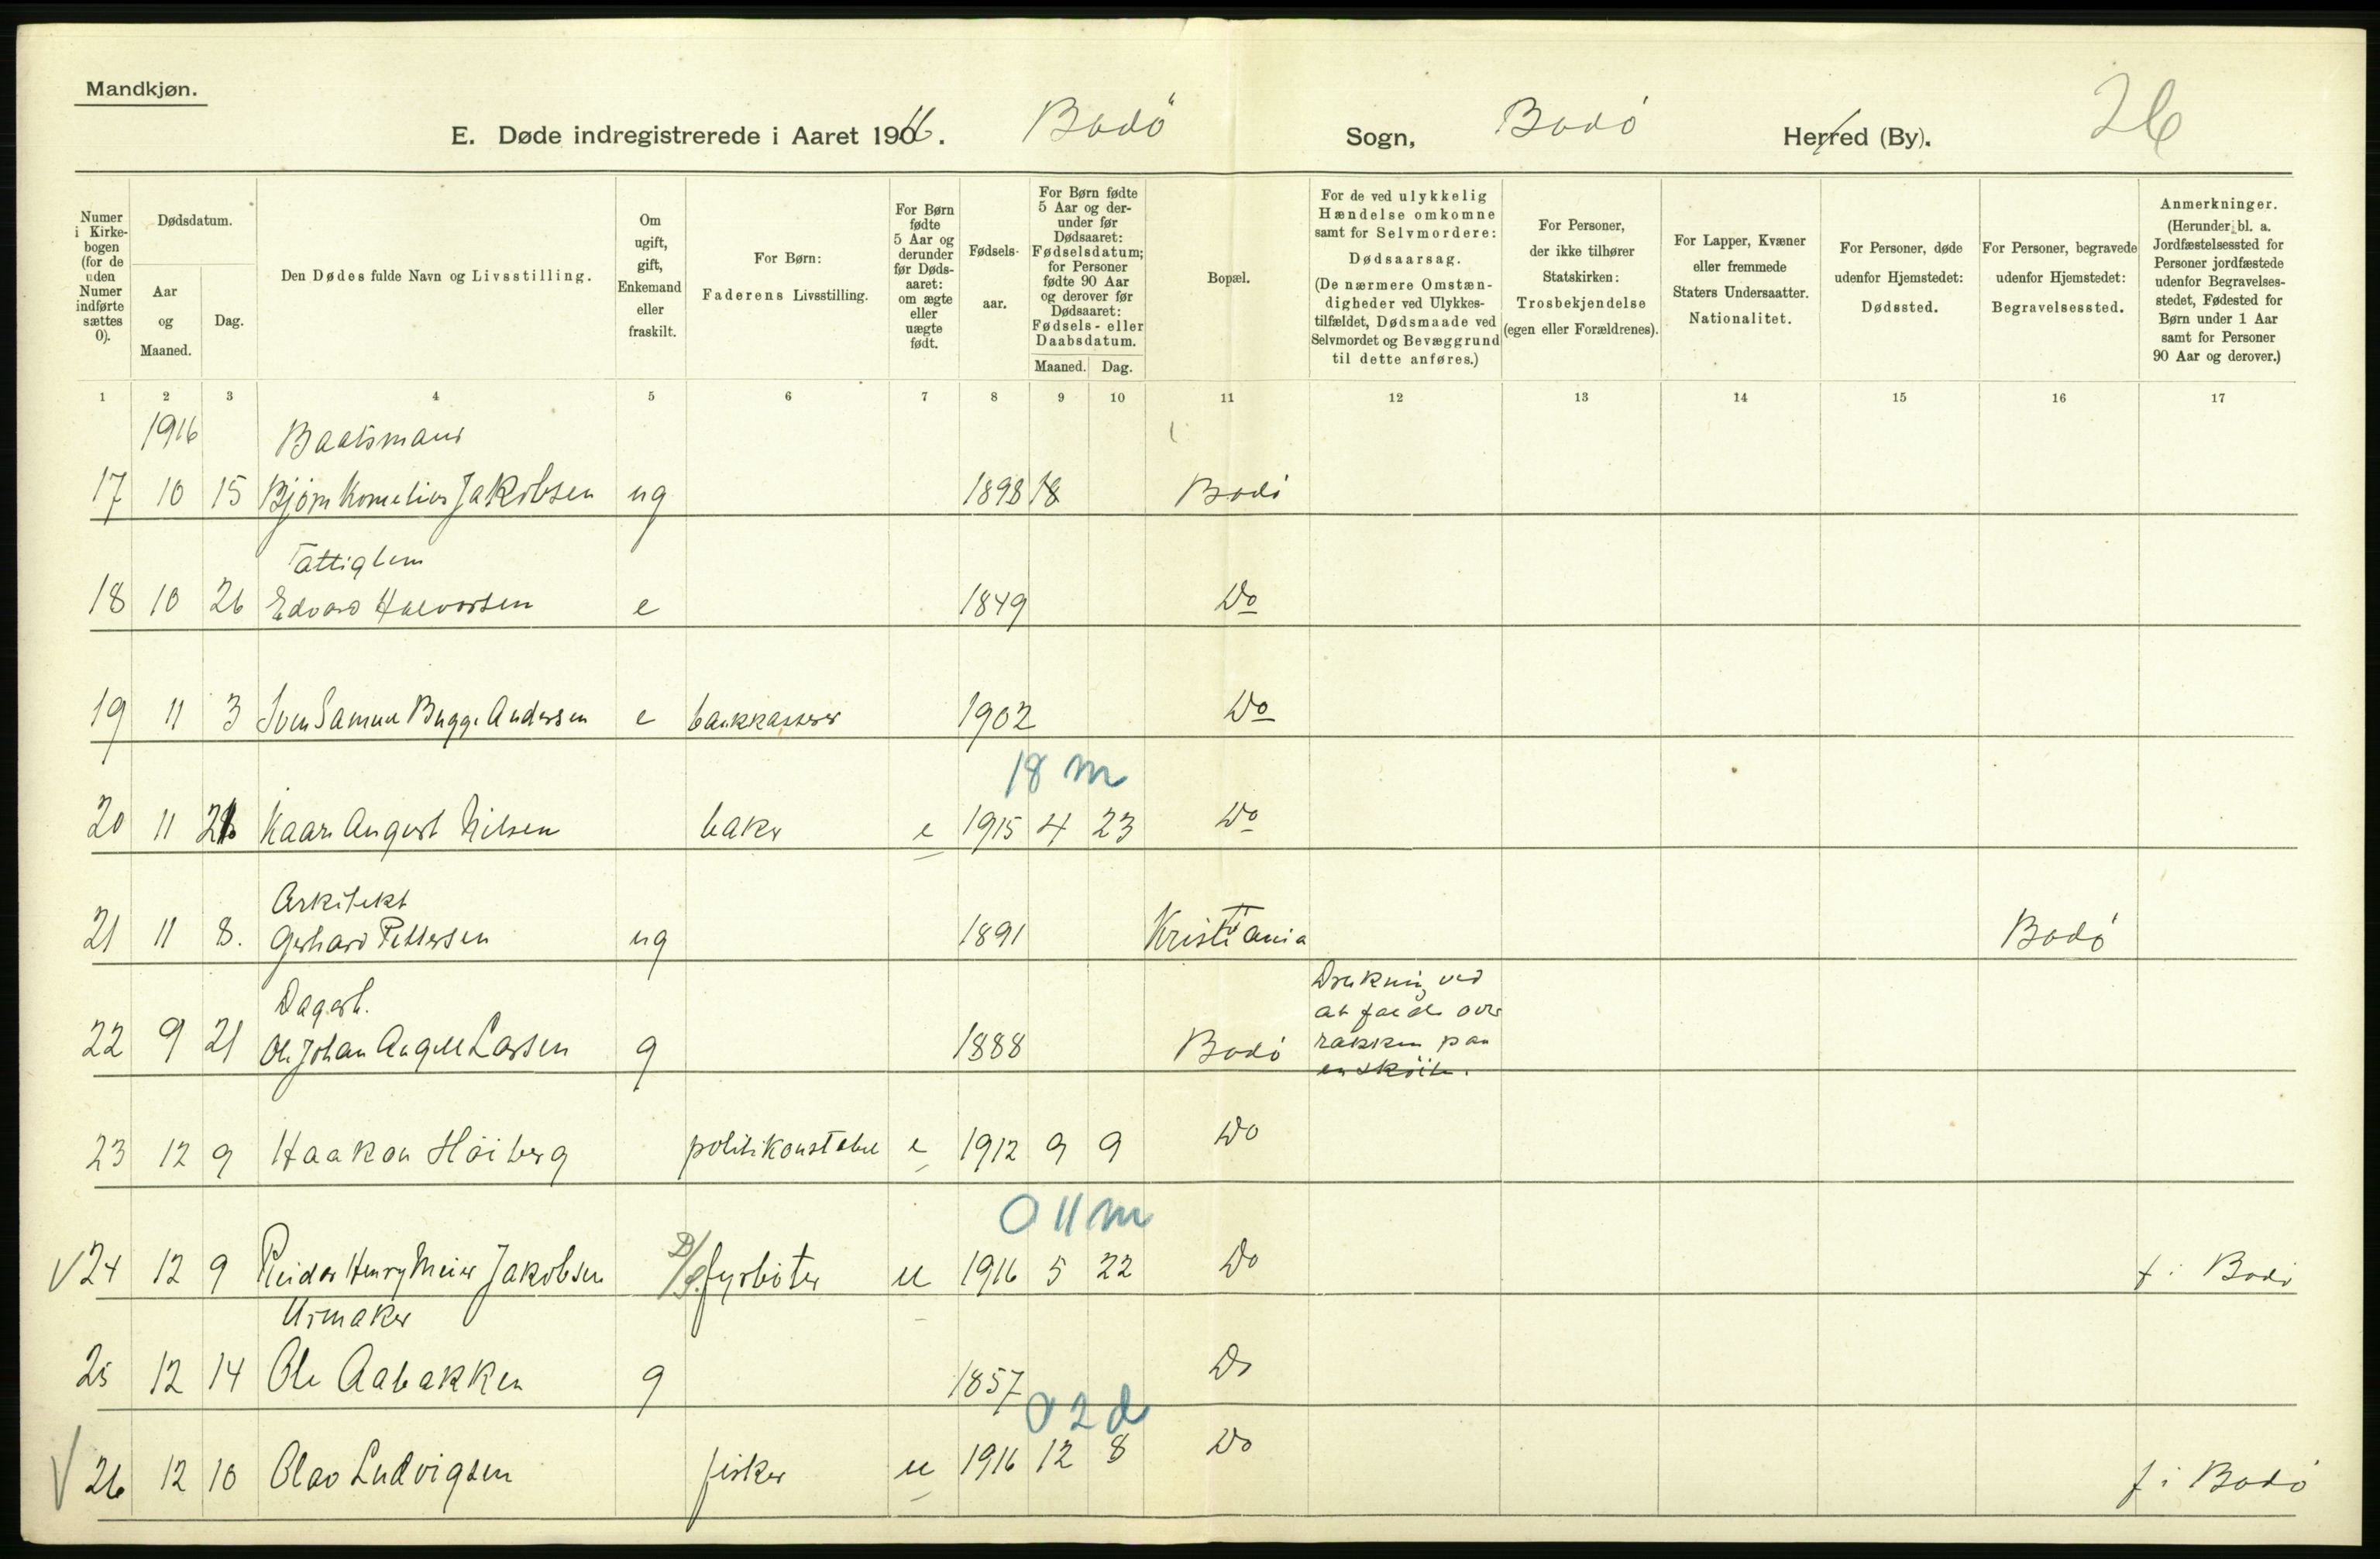 Mandkjøn.
E. Døde indregistrerede i Aaret 1916. Bodö Sogn, Bodö Herred (By). 26
Numer i Kirkebogen (for de uden Numer indførte sættes 0).
Dødsdatum.
Aar og Maaned.
Dag.
Den Dødes fulde Navn og Livsstilling.
Om ugift, gift, Enkemand eller fraskilt.
For Børn: Faderens Livsstilling.
For Børn fødte 5 Aar og derunder før Dødsaaret: om ægte eller uægte født.
Fødselsaar.
For Børn fødte 5 Aar og derunder før Dødsaaret: Fødselsdatum; for Personer fødte 90 Aar og derover før Dødsaaret: Fødsels- eller Daabsdatum.
Maaned. Dag.
Bopæl.
For de ved ulykkelig Hændelse omkomne samt for Selvmordere: Dødsaarsag. (De nærmere Omstændigheder ved Ulykkestilfældet, Dødsmaade ved Selvmordet og Bevæggrund til dette anføres.)
For Personer, der ikke tilhører Statskirken: Trosbekjendelse (egen eller Forældrenes).
For Lapper, Kvæner eller fremmede Staters Undersaatter. Nationalitet.
For Personer, døde udenfor Hjemstedet: Dødssted.
For Personer, begravede udenfor Hjemstedet: Begravelsessted.
Anmerkninger. (Herunder bl. a. Jordfæstelsessted for Personer jordfæstede udenfor Begravelsesstedet, Fødested for Børn under 1 Aar samt for Personer 90 Aar og derover.)
1 2 3 4 5 6 7 8 9 10 11 12 13 14 15 16 17
1916 Baatsmans
17 10 15 Björn Kornelius Jakobsen ug 1898 18 Bodö
Fattiglem
18 10 26 Edvard Halvorsen e 1849 Do
19 11 3 Sven Samuel Bugge Andersen e bankkasserer 1902 Do
18 m
20 11 Kaare August Nilsen baker e 1915 4 23 Do
Arkitekt
21 11 8. Gerhard Pettersen ug 1891 Kristiania Bodö
Dagarb.
22 9 21 Ole Johan Angell Larsen g 1888 Bodö Drukning ved
at falde over
rækken paa
en sköite.
23 12 9 Haakon Höiberg politikonstabel e 1912 9 9 Do
0 11 m
V 24 12 9 Reidar Henry Meier Jakobsen D/S. fyrböter u 1916 5 22 Do f i Bodö
Urmaker
25 12 14 Ole Aabakken g 1857 Do
0 2 d
V 26 12 10 Olav Ludvigsen fisker u 1916 12 8 Do f i Bodö